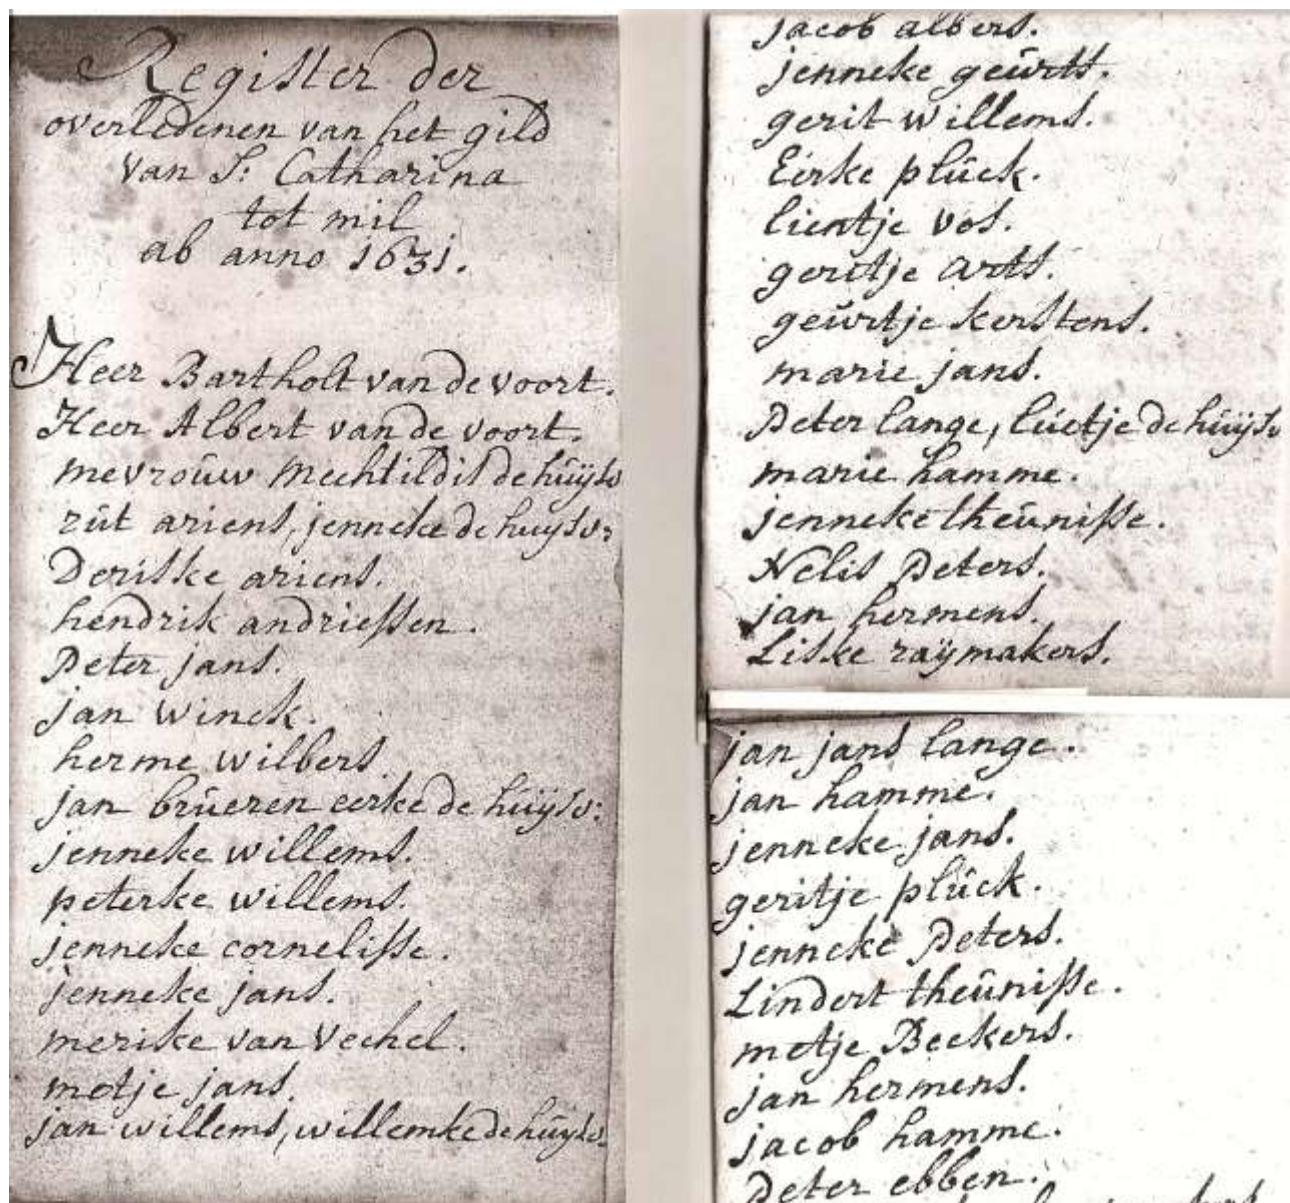 Register der
overledenen van het gild
van S: Catharina
tot mil
ab anno 1631.
Heer Bartholt van de voort.
Heer Albert van de voort.
mevroúw Mechtildis de húÿsv
rút ariens, jenneke de huysv:
Deriske ariens.
hendrik andriessen.
Peter jans.
jan winck.
herme wilbers.
jan brúeren eerke de húÿsv:
jenneke willems.
peterke willems.
jenneke cornelisse.
jenneke jans.
merike van Vechel.
metje jans.
jan willems, willemke de húÿsv.
jacob albers.
jenneke geúrts.
gerit willems.
Eirke plúck.
lientje vos.
geritje arts.
geúrtje kerstens.
marie jans.
Peter lange, lúetje de húÿsv
marie hamme.
jenneke theúnisse.
Nelis Peters.
jan hermens.
Liske raÿmakers.
jan jans lange.
jan hamme.
jenneke jans.
geritje plúck.
jenneke Peters.
Lindert theúnisse.
metje Beekers.
jan hermens.
jacob hamme.
Peter ebben.